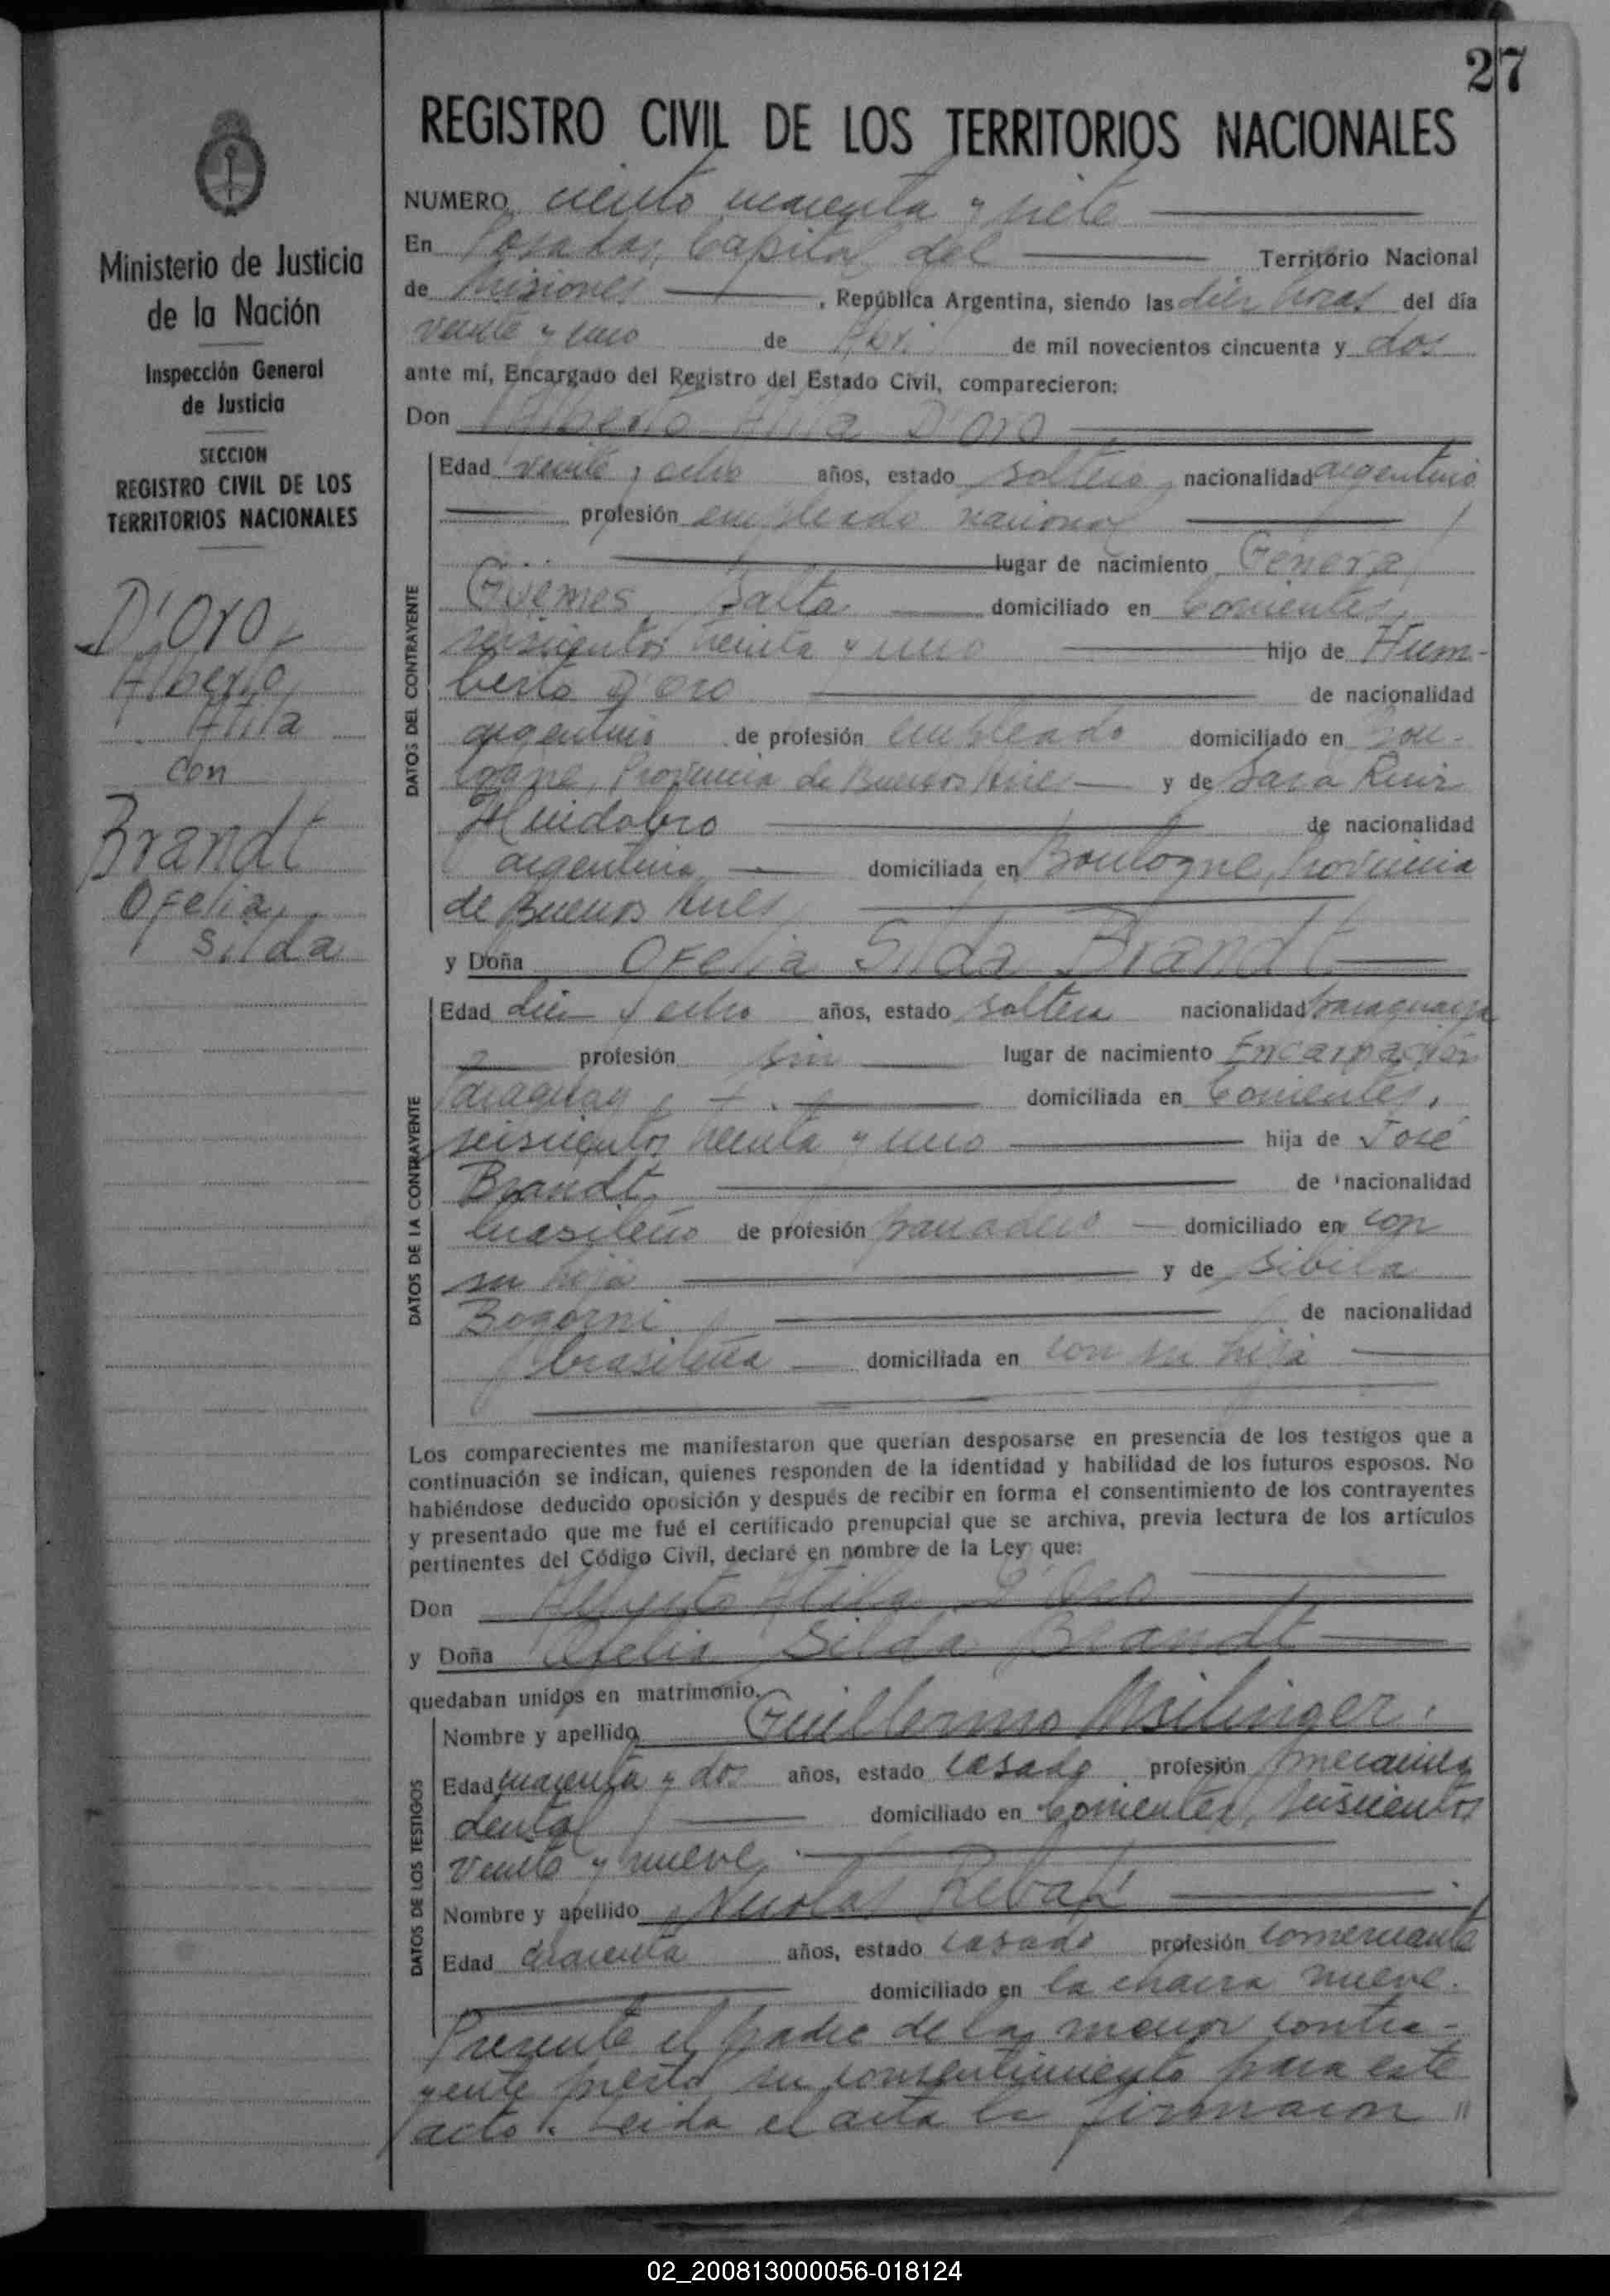 27
REGISTRO CIVIL DE LOS TERRITORIOS NACIONALES
Ministerio de Justicia
de la Nación
Inspección General
de Justicia
SECCION
REGISTRO CIVIL DE LOS
TERRITORIOS NACIONALES
D'Oro,
Alberto
Atila
con
Brandt
Ofelia
Silda
NUMERO ciento cuarenta y siete
En Posadas, Capital del Territorio Nacional
de Misiones, República Argentina, siendo las diez horas del día
veinte y uno de Abril de mil novecientos cincuenta y dos
ante mí, Encargado del Registro del Estado Civil, comparecieron:
Don Alberto Atila D'Oro
DATOS DEL CONTRAYENTE
Edad veinte y ocho años, estado soltero, nacionalidad argentino
profesión empleado nacional
lugar de nacimiento General
Güemes, Salta domiciliado en Corrientes
seiscientos treinta y uno hijo de Hum-
berto D'Oro de nacionalidad
argentino de profesión empleado domiciliado en Bou-
logne, Provincia de Buenos Aires y de Sara Ruiz
Huidobro de nacionalidad
argentina domiciliada en Boulogne, Provincia
de Buenos Aires
y Doña Ofelia Silda Brandt
DATOS DE LA CONTRAYENTE
Edad diez y ocho años, estado soltera nacionalidad paraguaya
profesión sin lugar de nacimiento Encarnación
Paraguay domiciliada en Corrientes,
seiscientos treinta y uno hija de José
Brandt, de nacionalidad
brasileño de profesión panadero domiciliado en con
su hija y de Sibila
Bogorni de nacionalidad
brasileña domiciliada en con su hija
Los comparecientes me manifestaron que querían desposarse en presencia de los testigos que a
continuación se indican, quienes responden de la identidad y habilidad de los futuros esposos. No
habiéndose deducido oposición y después de recibir en forma el consentimiento de los contrayentes
y presentado que me fué el certificado prenupcial que se archiva, previa lectura de los artículos
pertinentes del Código Civil, declaré en nombre de la Ley que:
Don Alberto Atila D'Oro
y Doña Ofelia Silda Brandt
quedaban unidos en matrimonio.
DATOS DE LOS TESTIGOS
Nombre y apellido Guillermo
Edad cuarenta y dos años, estado casado profesión mecánico
dental domiciliado en Corrientes, seiscientos
veinte y nueve
Nombre y apellido Nicolas
Edad cuarenta años, estado casado profesión comerciante
domiciliado en la chacra nueve.
Presente el padre de la menor contra-
yente prestó su consentimiento para este
acto. Leida el acta la firmaron
02_200813000056-018124